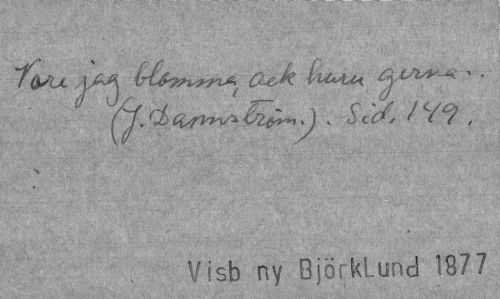 Vore jag blomma, ack huru gerna..
(J. Dannström.). Sid. 149.
Visb ny Björklund 1877